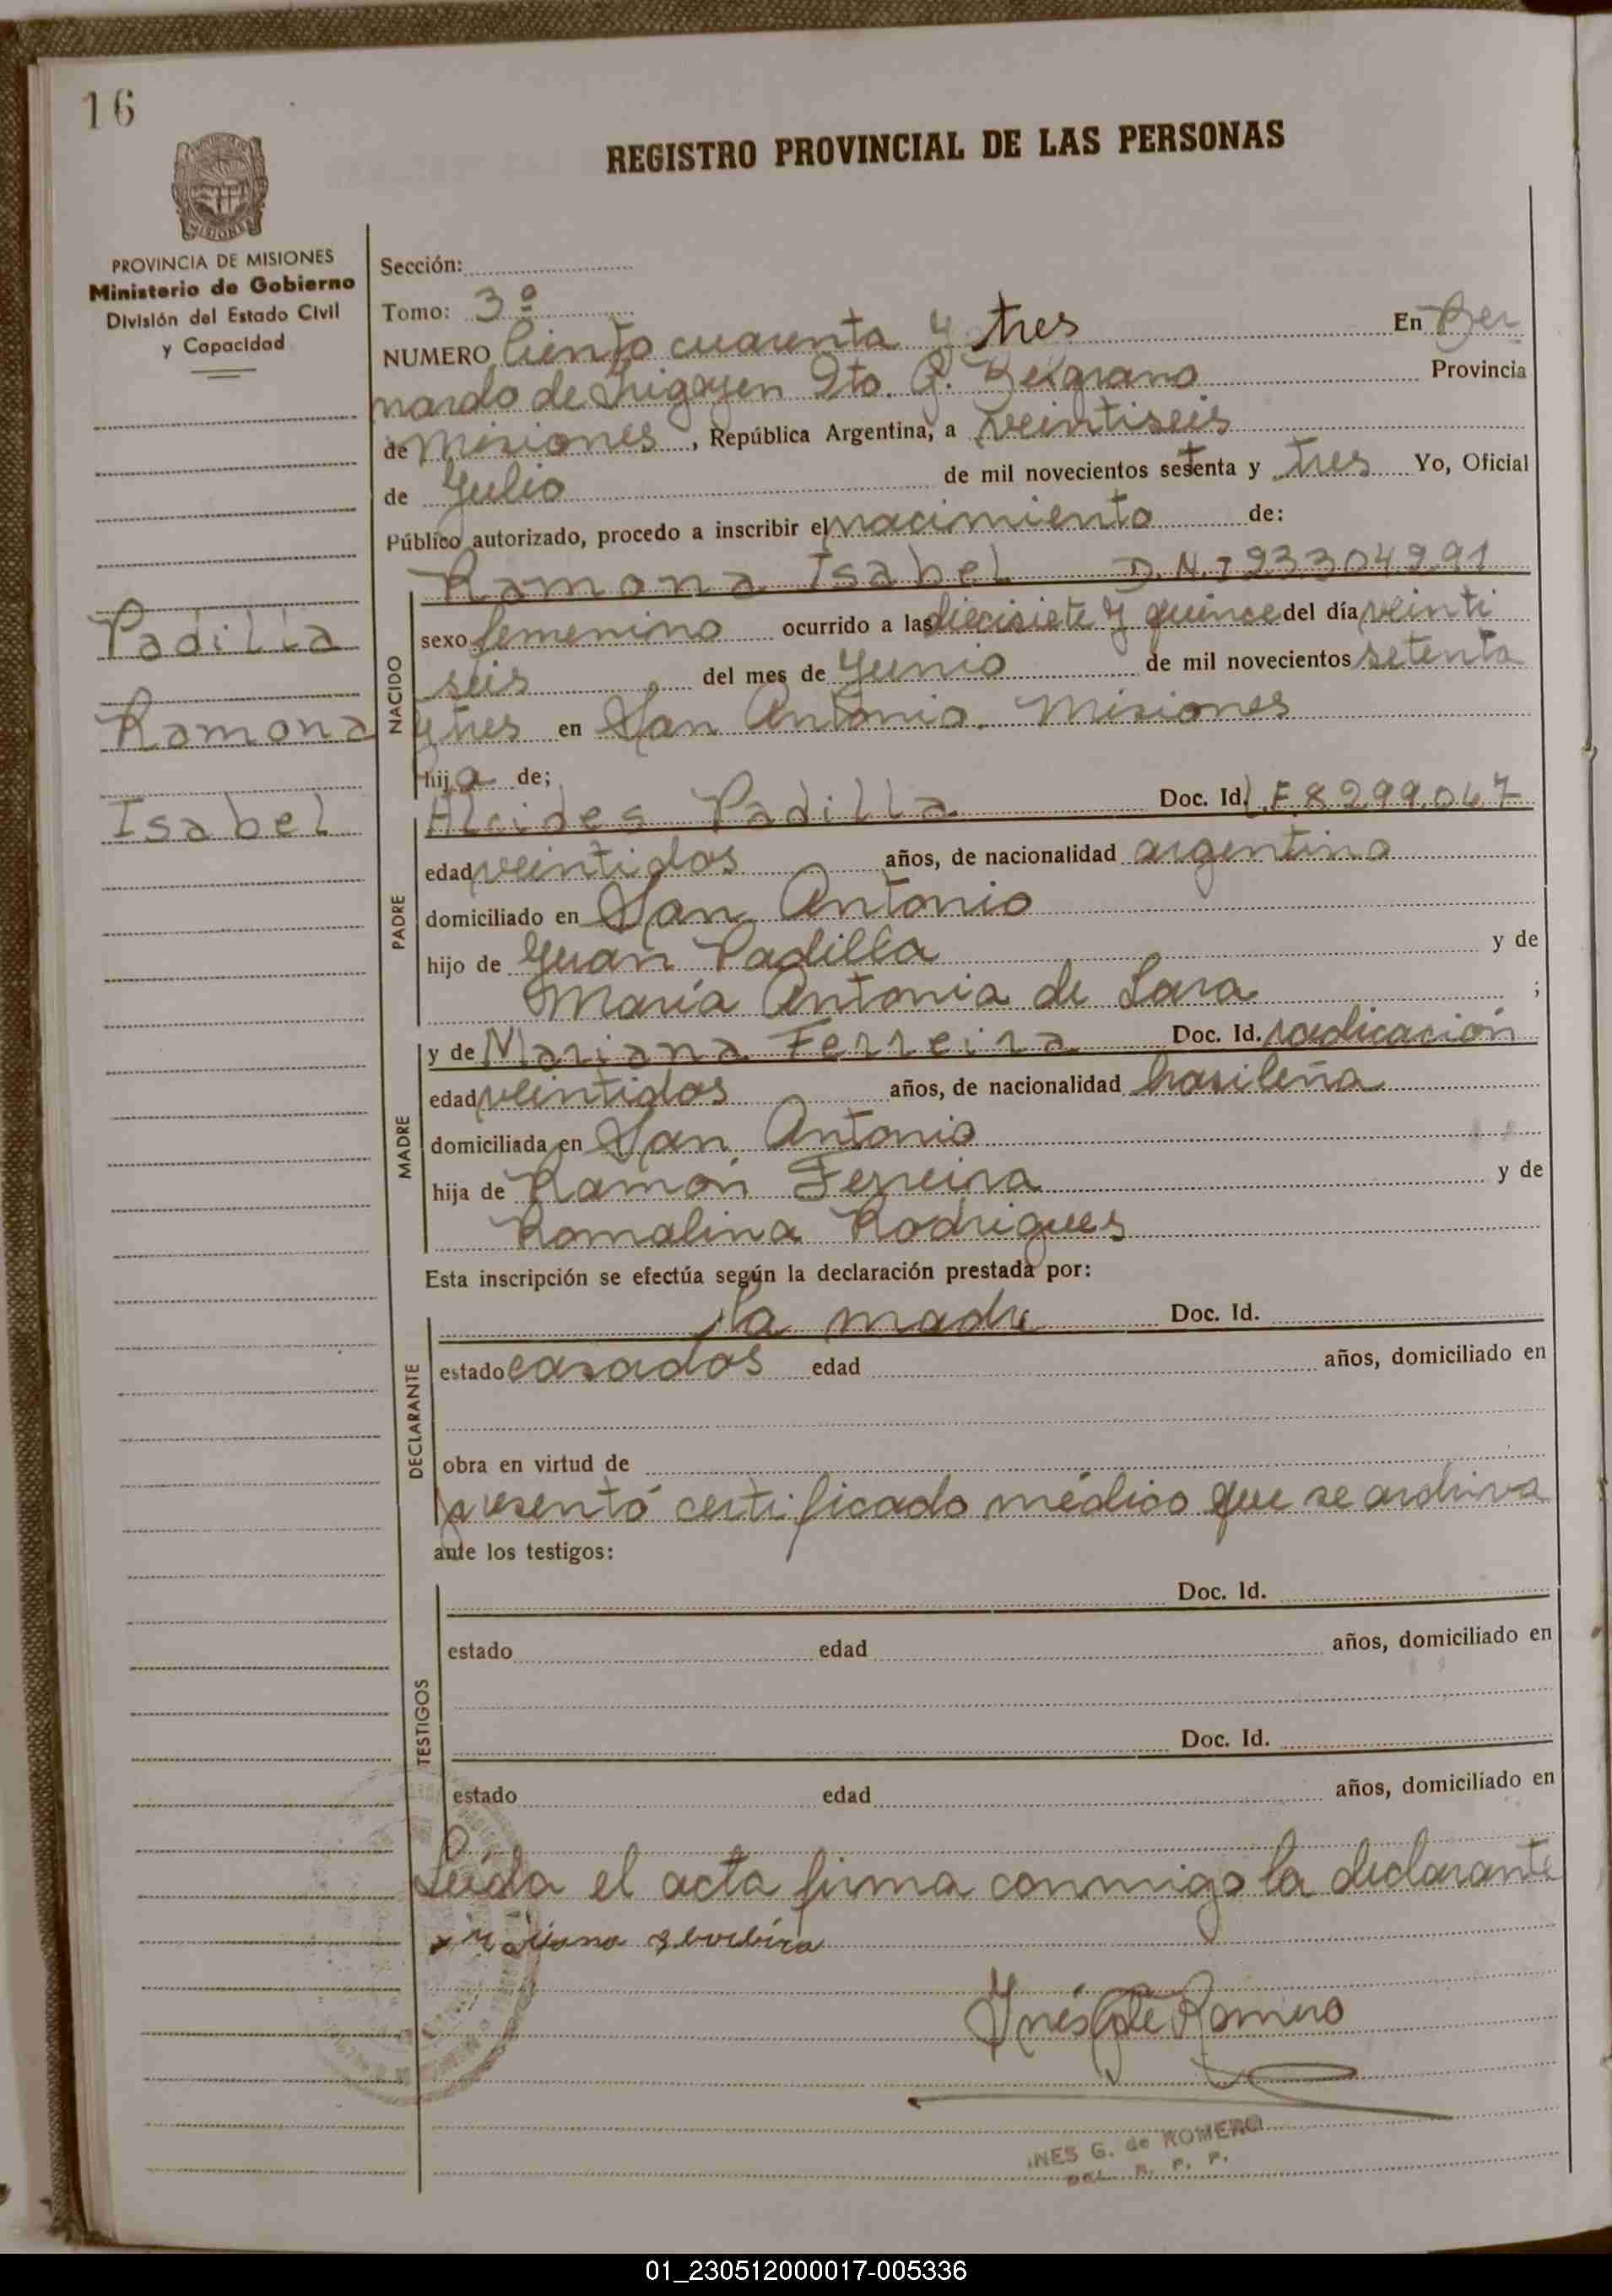 16
REGISTRO PROVINCIAL DE LAS PERSONAS
MISIONES
PROVINCIA DE MISIONES
Ministerio de Gobierno
División del Estado Civil
y Capacidad
Padilla
Ramona
Isabel
Sección:
Tomo: 3º
NUMERO Ciento cuarenta y tres En Ber
nardo de Irigoyen Dto. G. Belgrano Provincia
de Misiones, República Argentina, a veintiseis
de Julio de mil novecientos setenta y tres Yo, Oficial
Público autorizado, procedo a inscribir el nacimiento de:
NACIDO
Ramona Isabel D.N.I 23304291
sexo femenino ocurrido a las diecisiete y quince del día veinti
seis del mes de Junio de mil novecientos setenta
y tres en San Antonio. Misiones
hija de;
PADRE
Alcides Padilla Doc. Id. L.E 8299.067
edad veintidos años, de nacionalidad argentino
domiciliado en San Antonio
hijo de Juan Padilla y de
María Antonia de Lara ;
MADRE
y de Mariana Ferreira Doc. Id. radicación
edad veintidos años, de nacionalidad brasileña
domiciliada en San Antonio
hija de Ramón Ferreira y de
Romalina Rodrigues
Esta inscripción se efectúa según la declaración prestada por:
DECLARANTE
la madre Doc. Id.
estado casados edad años, domiciliado en
obra en virtud de
presentó certificado médico que se archiva
ante los testigos:
TESTIGOS
Doc. Id.
estado edad años, domiciliado en
Doc. Id.
estado edad años, domiciliado en
Leída el acta firma conmigo la declarante
Inés G de Romero
INES G. de ROMERO
DEL. R. P. P.
01_230512000017-005336